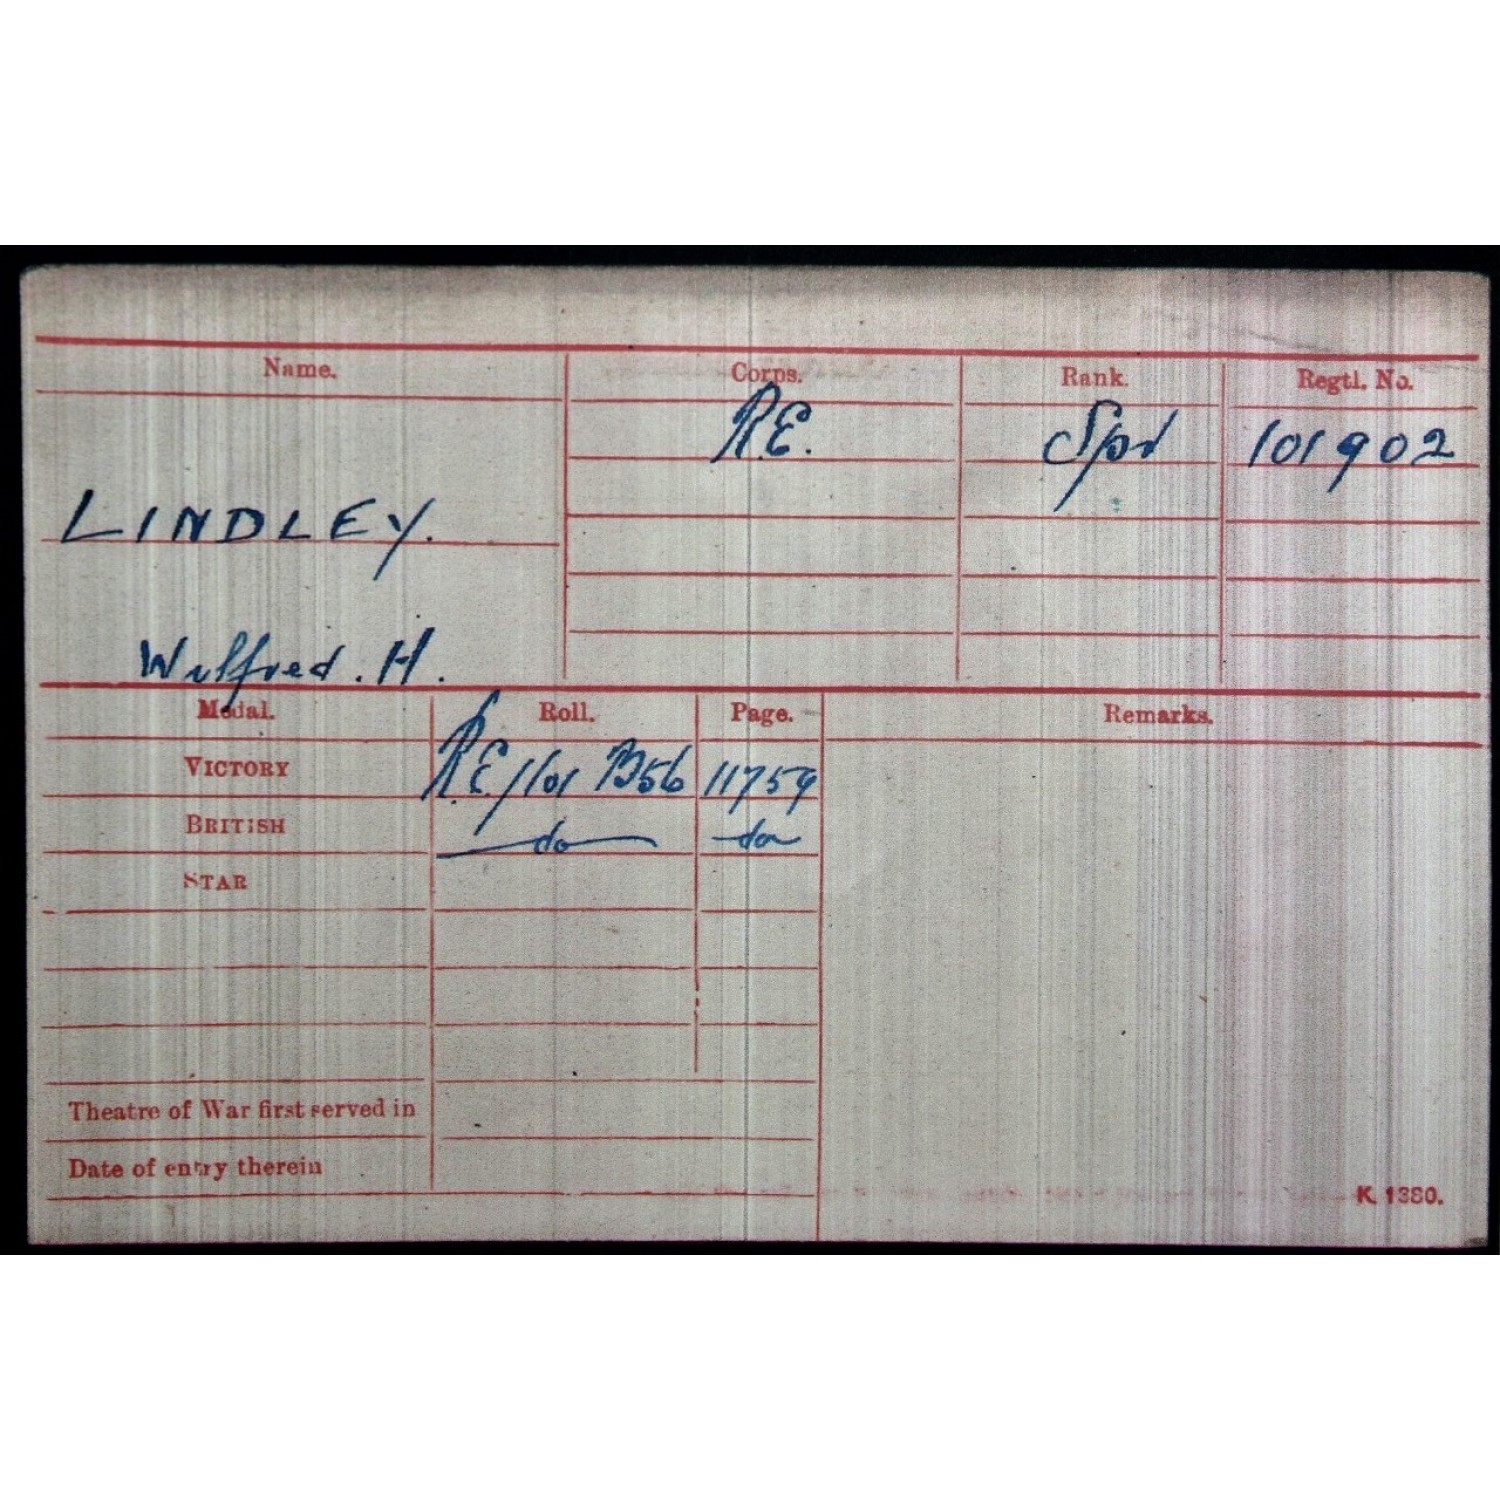 Name. Corps. Rank. Regtl. No.
R.E. Spr 101902
LINDLEY.
Wilfred. H.
Medal. Roll. Page. Remarks.
VICTORY R.E/101 B56 11759
BRITISH do do
STAR
Theatre of War first served in
Date of entry therein
K. 1380.